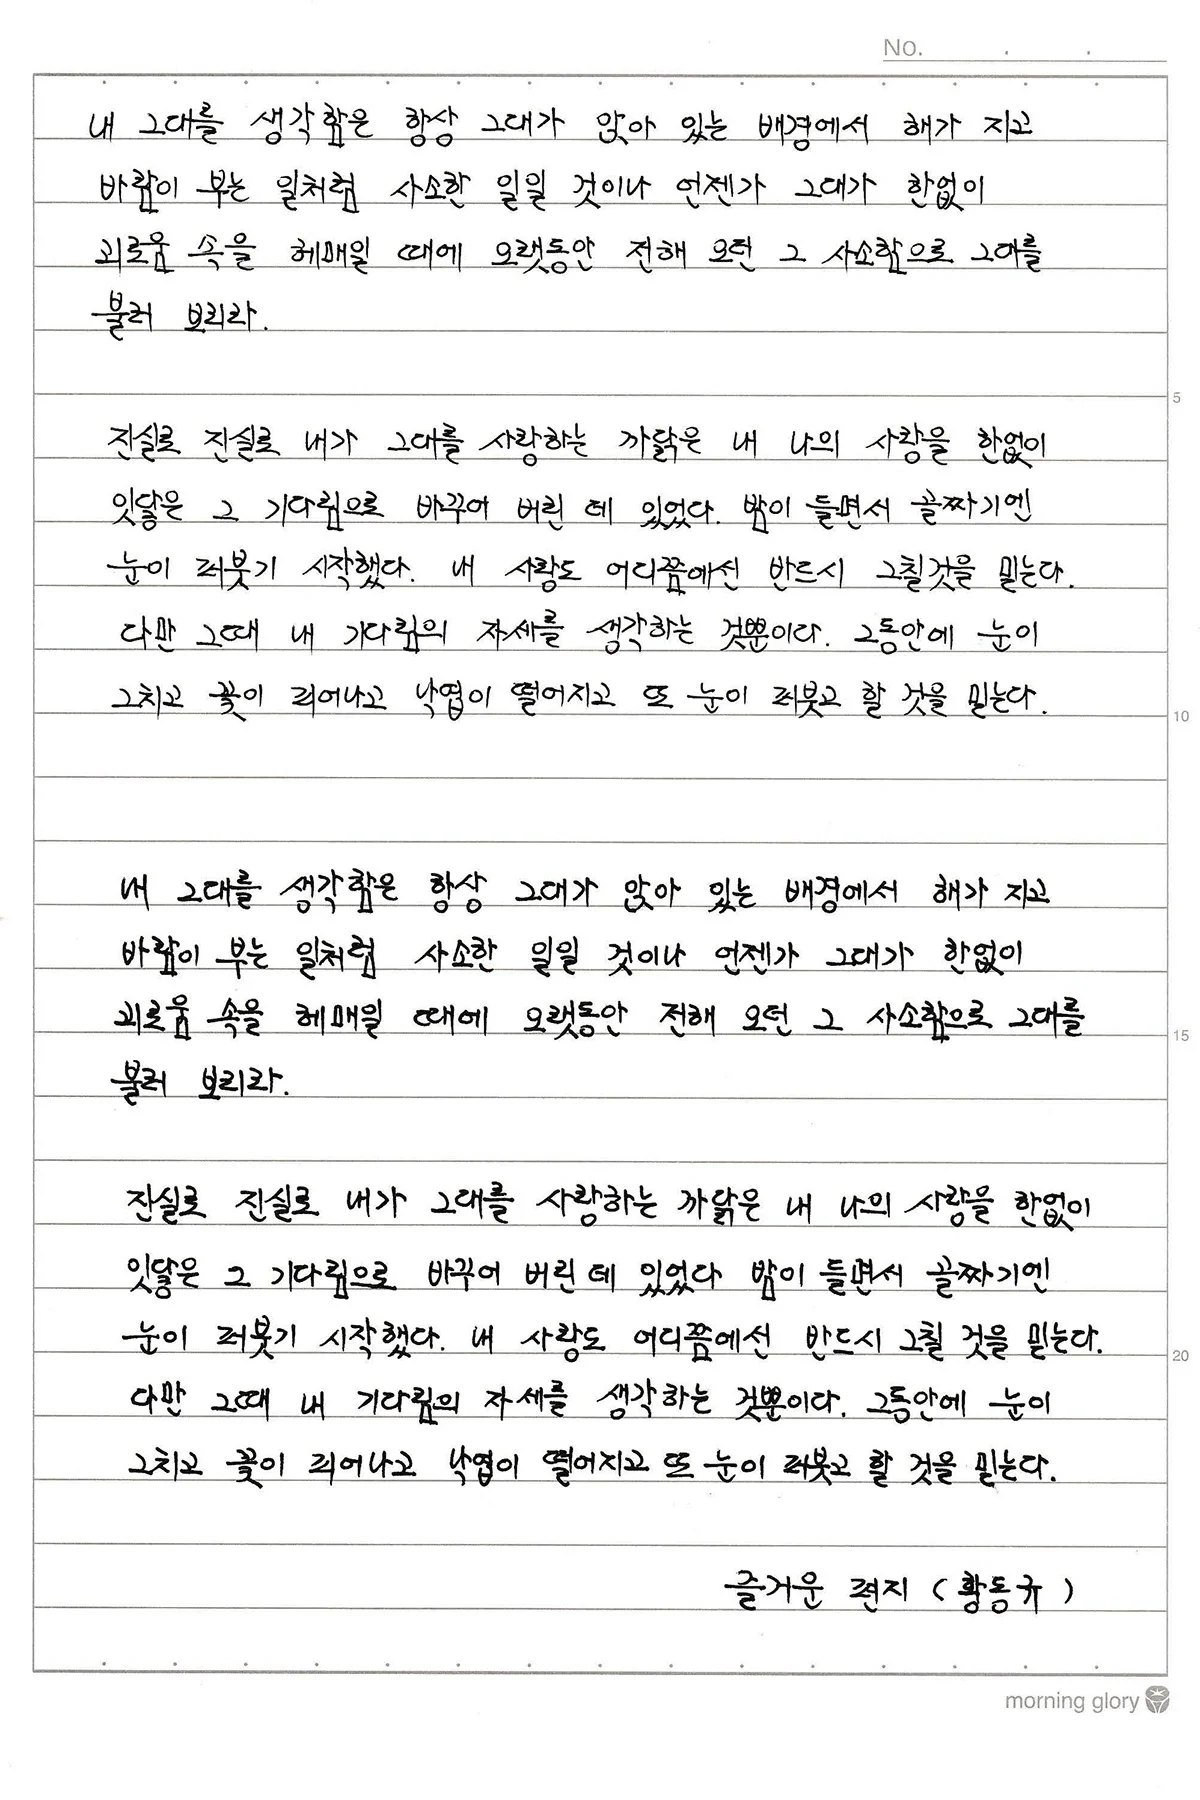 No.
내 그대를 생각함은 항상 그대가 앉아 있는 배경에서 해가 지고
바람이 부는 일처럼 사소한 일일 것이나 언젠가 그대가 한없이
괴로움 속을 헤매일 때에 오랫동안 전해 오던 그 사소함으로 그대를
불러 보리라.
5
진실로 진실로 내가 그대를 사랑하는 까닭은 내 나의 사랑을 한없이
잇닿은 그 기다림으로 바꾸어 버린 데 있었다. 밤이 들면서 골짜기엔
눈이 퍼붓기 시작했다. 내 사랑도 어디쯤에선 반드시 그칠 것을 믿는다.
다만 그때 내 기다림의 자세를 생각하는 것뿐이다. 그동안에 눈이
그치고 꽃이 피어나고 낙엽이 떨어지고 또 눈이 퍼붓고 할 것을 믿는다.
10
내 그대를 생각함은 항상 그대가 앉아 있는 배경에서 해가 지고
바람이 부는 일처럼 사소한 일일 것이나 언젠가 그대가 한없이
괴로움 속을 헤매일 때에 오랫동안 전해 오던 그 사소함으로 그대를
15
불러 보리라.
진실로 진실로 내가 그대를 사랑하는 까닭은 내 나의 사랑을 한없이
잇닿은 그 기다림으로 바꾸어 버린 데 있었다 밤이 들면서 골짜기엔
눈이 퍼붓기 시작했다. 내 사랑도 어디쯤에선 반드시 그칠 것을 믿는다.
20
다만 그때 내 기다림의 자세를 생각하는 것뿐이다. 그동안에 눈이
그치고 꽃이 피어나고 낙엽이 떨어지고 또 눈이 퍼붓고 할 것을 믿는다.
즐거운 편지 (황동규)
morning glory